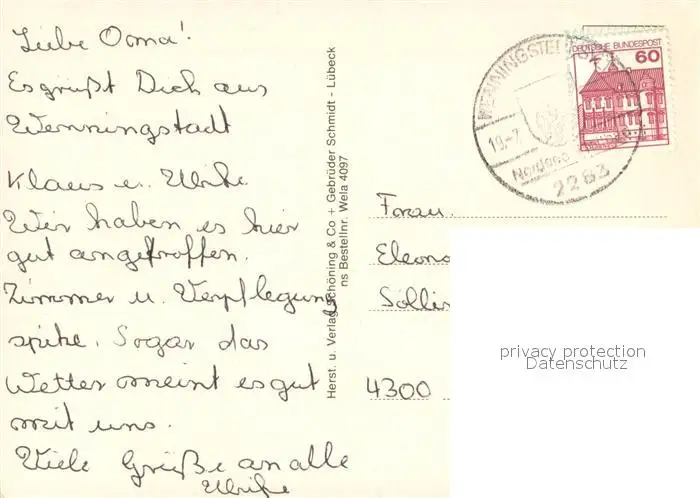 Liebe Oma!
Es grüßt Dich aus
Wenningstadt
Klaus u. Ulrike.
Wir haben es hier
gut angetroffen.
Zimmer u. Verpflegung
spitze. Sogar das
Wetter meint es gut
mit uns.
Viele Grüße an alle
Ulrike
Herst. u. Verlag Schöning & Co + Gebrüder Schmidt - Lübeck
ns Bestellnr. Wela 4097
DEUTSCHE BUNDESPOST
60
19.-7.
2283
Frau
4300
privacy protection
Datenschutz